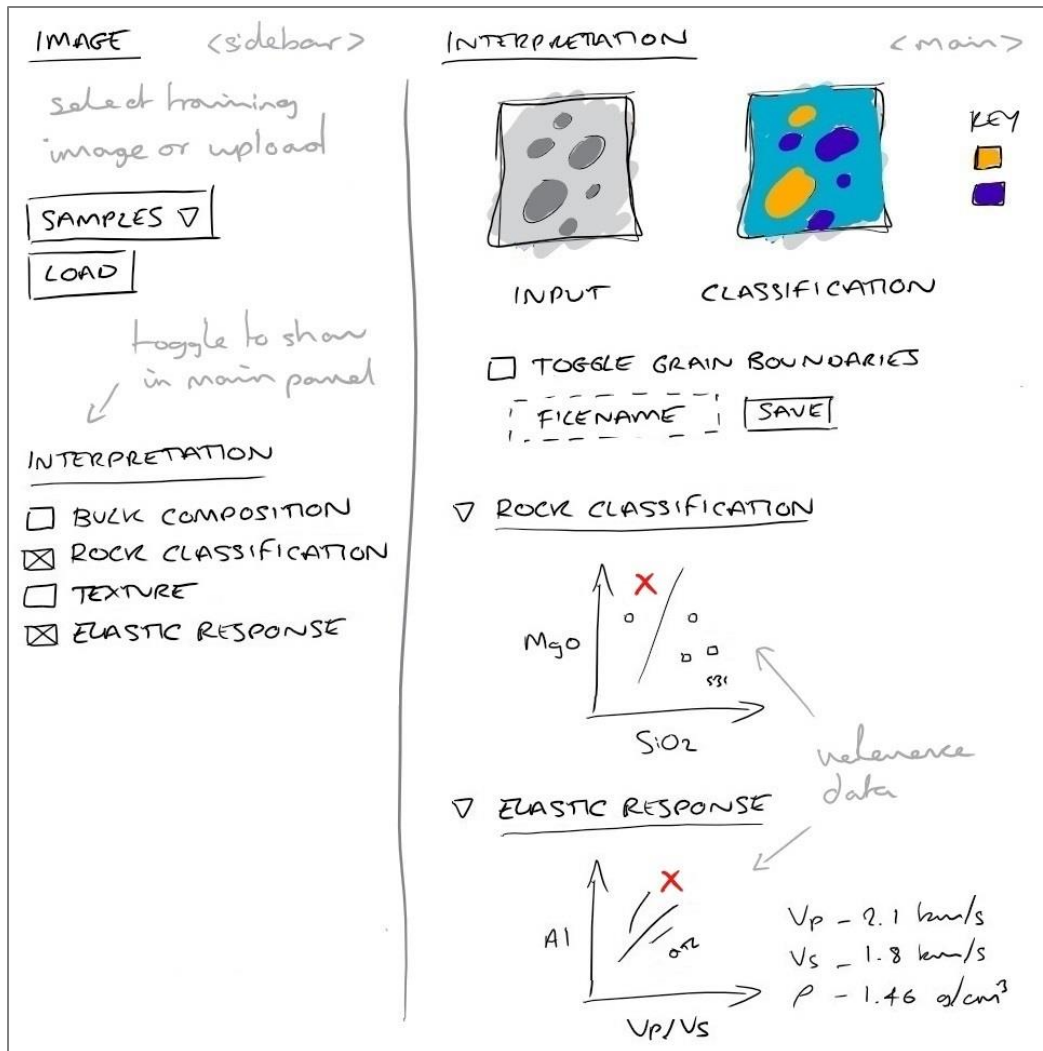 IMAGE <sidebar>
select training
image or upload
SAMPLES ▽
LOAD
toggle to show
in main panel
INTERPRETATION
BULK COMPOSITION
ROCK CLASSIFICATION
TEXTURE
ELASTIC RESPONSE
INTERPRETATION <main>
KEY
INPUT
CLASSIFICATION
TOGGLE GRAIN BOUNDARIES
FILENAME
SAVE
▽ ROCK CLASSIFICATION
MgO
SiO2
reference
data
▽ ELASTIC RESPONSE
AI
Vp/Vs
Vp – 2.1 km/s
Vs – 1.8 km/s
ρ – 1.46 g/cm³